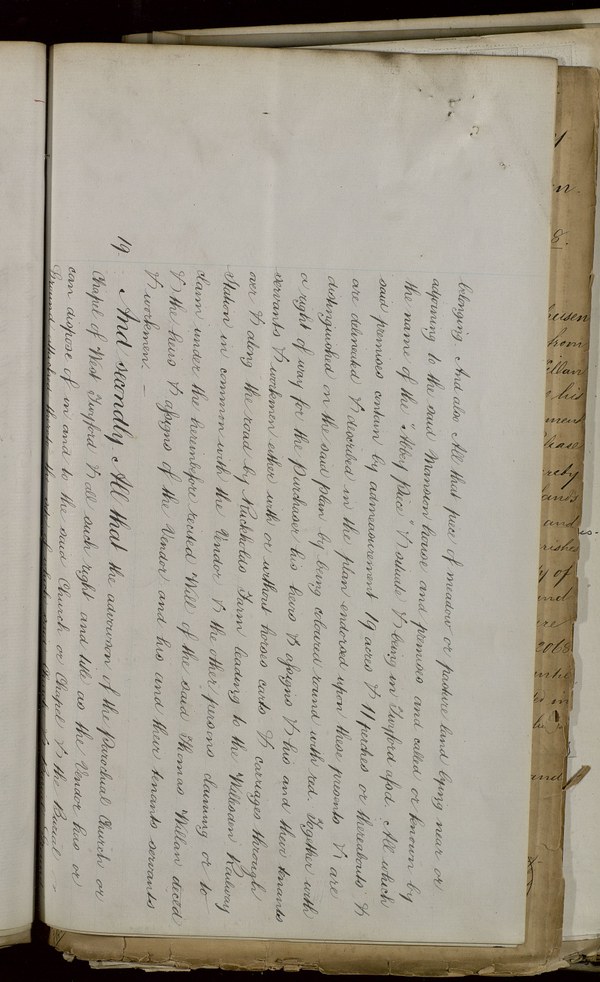 belonging And also All that piece of meadow or pasture land lying near or
adjoining to the said Mansion house and premises and called or known by
the name of the "Abbey Piece" & situate & being in Twyford afsd. All which
said premises contain by admeasurement 49 acres & 11 perches or thereabouts &
are delineated & described in the plan endorsed upon these presents & are
distinguished on the said plan by being coloured round with red. Together with
a right of way for the Purchaser his heirs & assigns & his and their tenants
servants & workmen either with or without horses carts & carriages through
over & along the road by Farm leading to the Willesden Railway
Station in common with the Vendor & the other persons claiming or to
claim under the hereinbefore recited Will of the said Thomas Willan deced
& the heirs & assigns of the Vendor and his and their tenants servants
& workmen —
19. And secondly All that the advowson of the Parochial Church or
Chapel of West Twyford & all such right and title as the Vendor has or
can dispose of in and to the said Church or Chapel & the Burial -
Ground